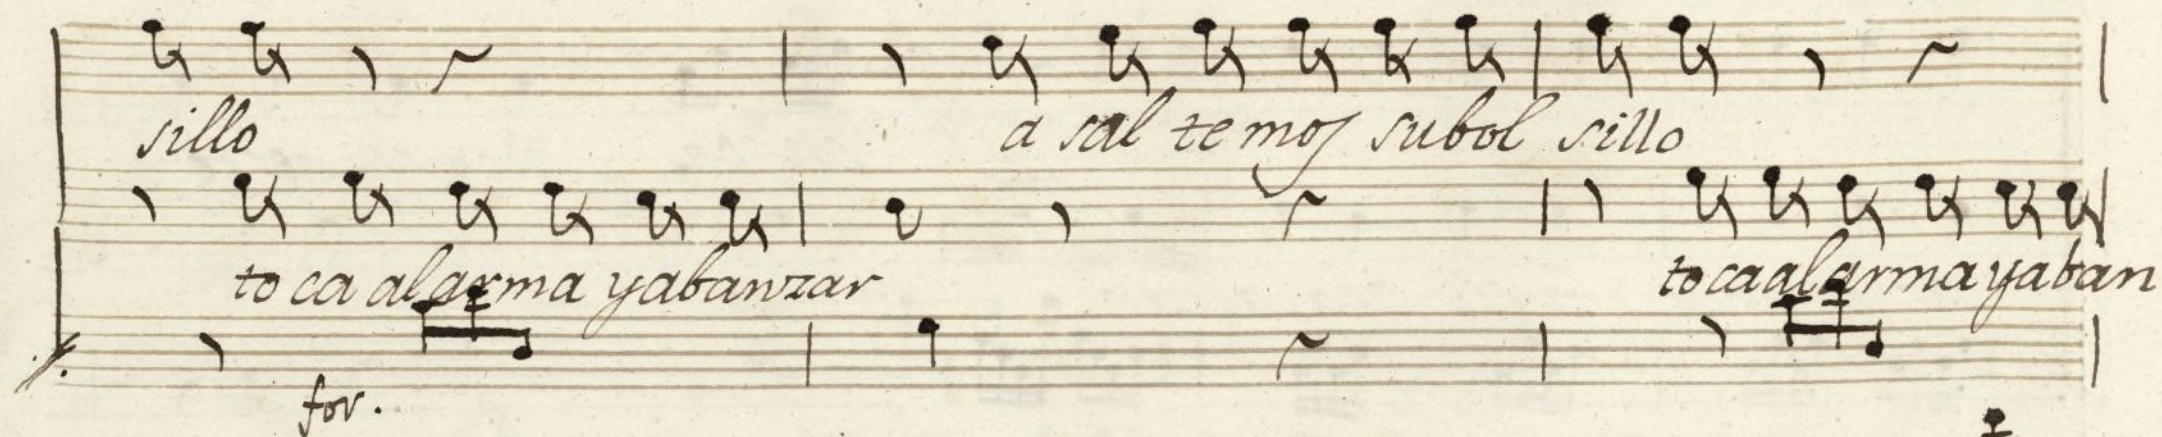 sillo a sal te mos subol sillo
to ca al arma yabanzar tocaalarmayaban
for.